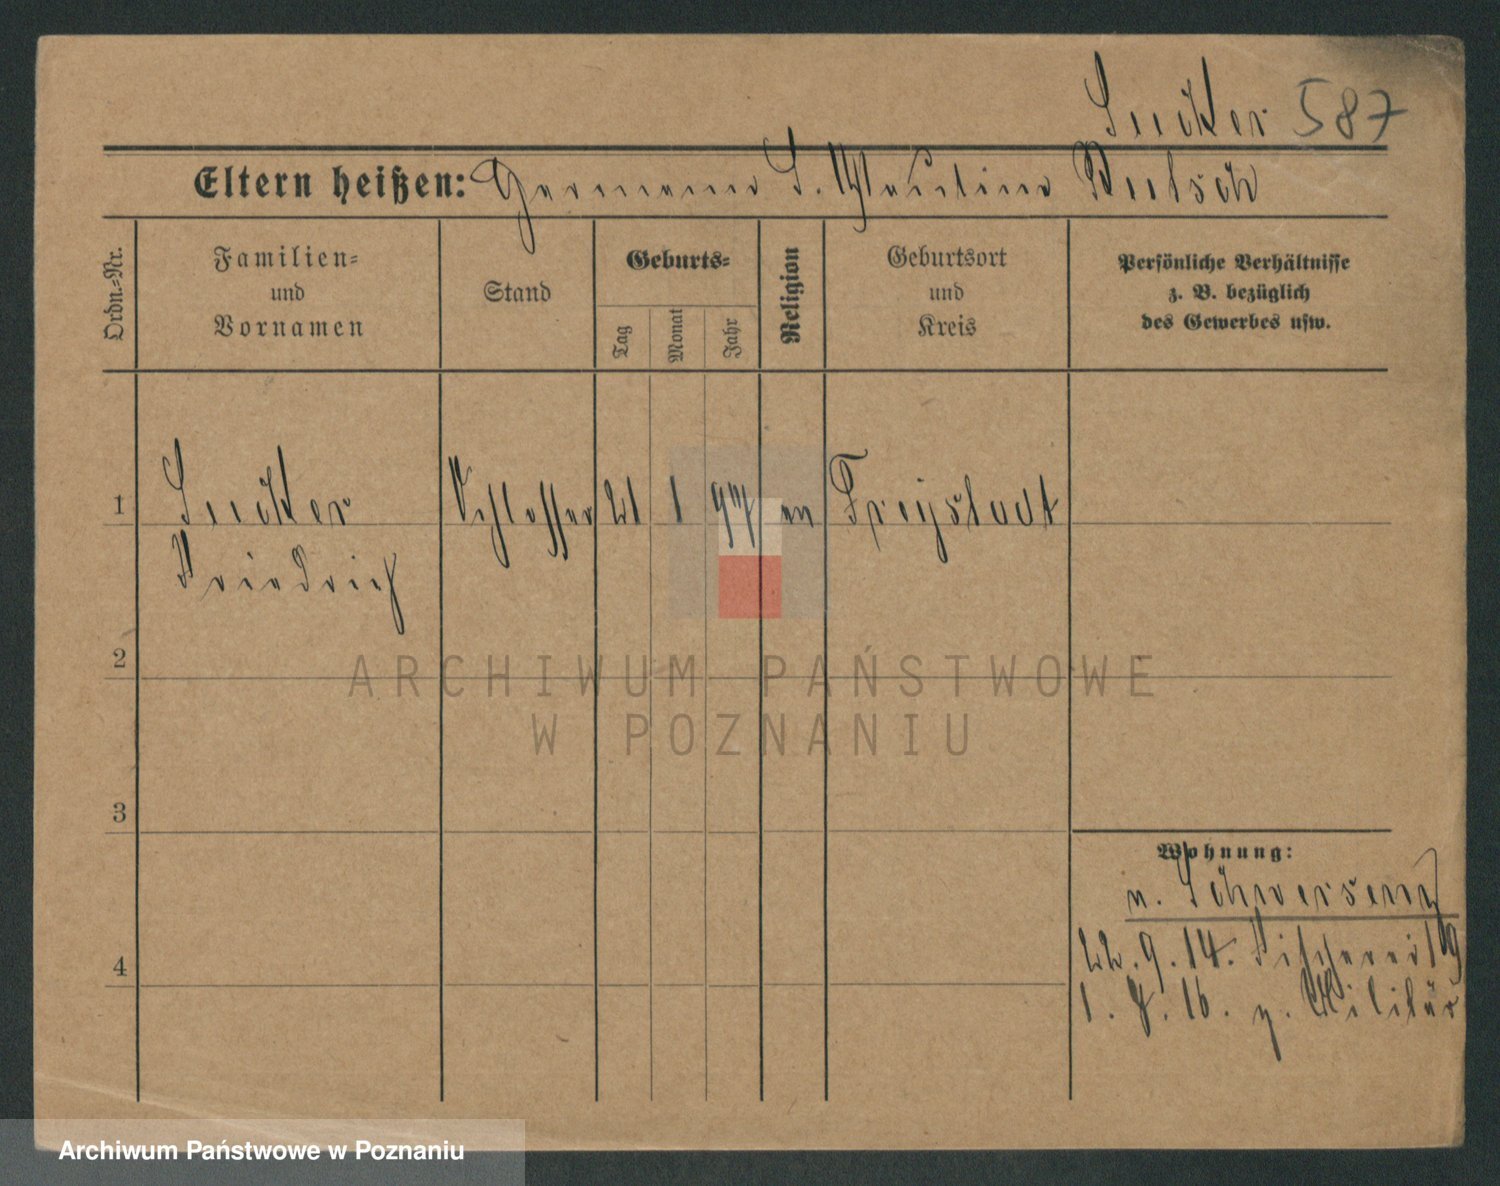 Suckler 587
Eltern heißen: Hermann S. Pauline
Ordn.-Nr.
Familien-
und
Vornamen
Stand
Geburts-
Tag
Monat
Jahr
Religion
Geburtsort
und
Kreis
Persönliche Verhältnisse
z. B. bezüglich
des Gewerbes usw.
1
Schlosser 21 1 97 ev Freystadt
Friedrich
2
ARCHIWUM PAŃSTWOWE
W POZNANIU
3
Wohnung:
n. Schwersenz
4
22. 9. 14. Fischerei 19
1. 8. 16. z. Militär
Archiwum Państwowe w Poznaniu